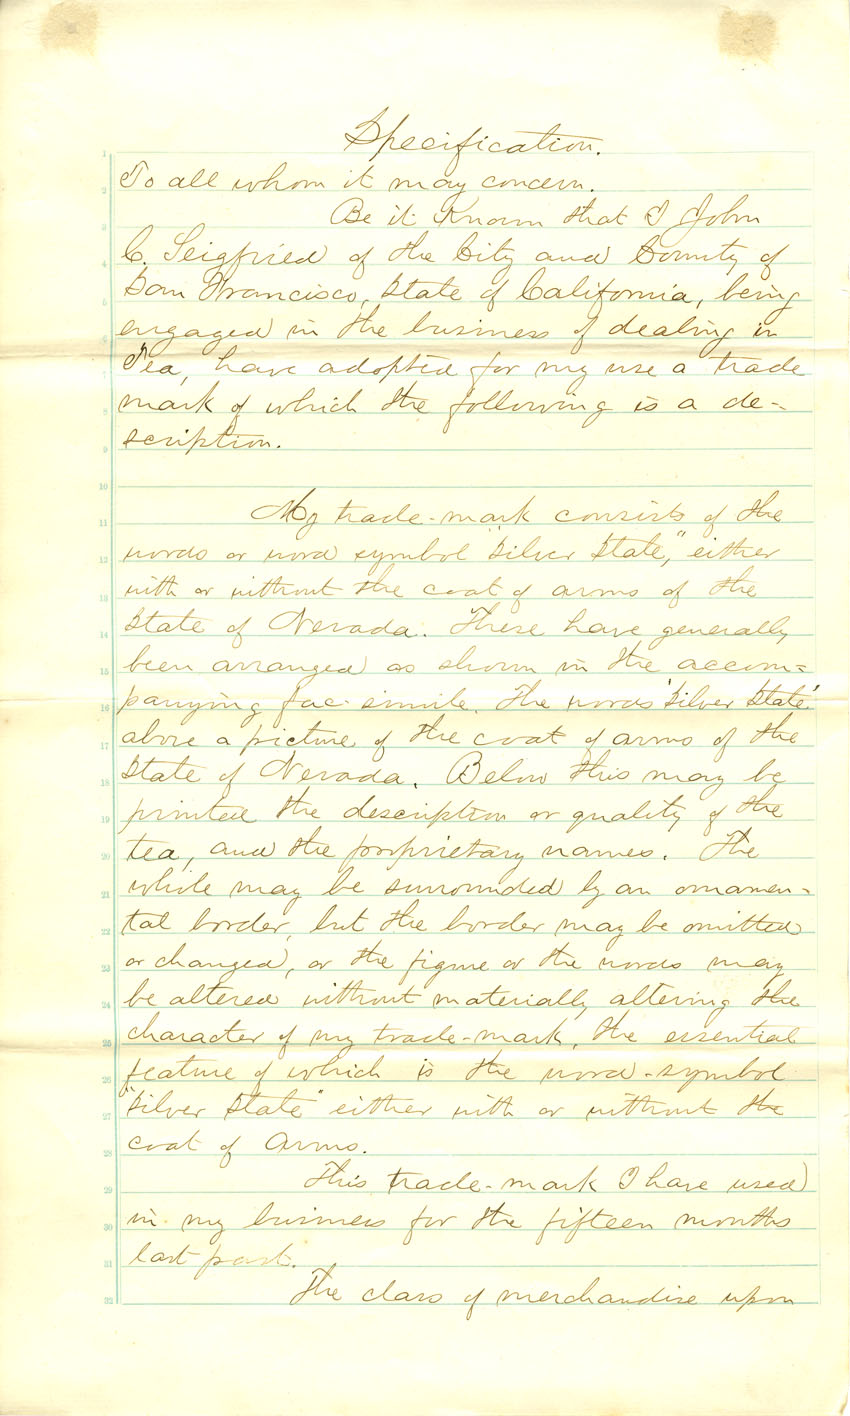 Specification.
1
To all whom it may concern.
2
Be it Known that I John
3
C. Seigfried of the City and County of
4
San Francisco, State of California, being
5
engaged in the business of dealing in
6
Tea, have adopted for my use a trade
7
mark of which the following is a de-
8
scription.
9
10
My trade-mark consists of the
11
words or word symbol "Silver State," either
12
with or without the coat of arms of the
13
State of Nevada. These have generally
14
been arranged as shown in the accom=
15
panying fac-simile. The words "Silver State"
16
above a picture of the coat of arms of the
17
State of Nevada. Below this may be
18
printed the description or quality of the
19
tea, and the proprietary names. The
20
whole may be surrounded by an ornamen-
21
tal border, but the border may be omitted
22
or changed, or the figure or the words may
23
be altered without materially altering the
24
character of my trade-mark, the essential
25
feature of which is the word-symbol
26
"Silver State" either with or without the
27
coat of Arms.
28
This trade-mark I have used
29
in my business for the fifteen months
30
last past.
31
The class of merchandise upon
32